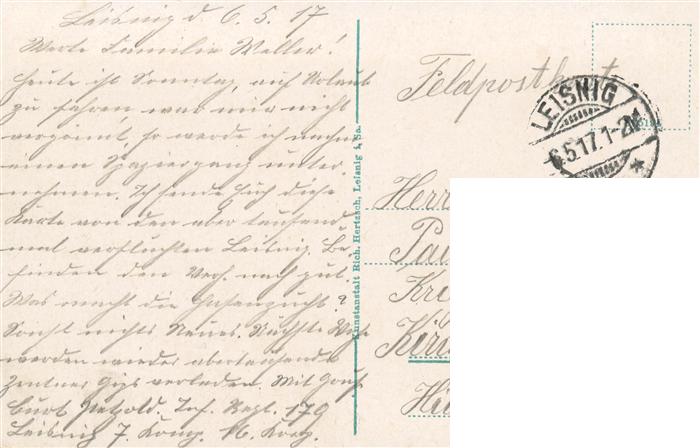 Leisnig d 6.5.17
Werte Familie Weller!
Heute ist Sonntag, auf Urlaub
zu fahren, war mir nicht
vergönnt, so werde ich
einen Spaziergang unter-
nehmen. Ich sende Euch diese
Karte von den aber tausend
mal verfluchten Leisnig. Be-
finden den Verh. nach gut.
Was macht die Hasenzucht?
Sonst nichts Neues. Nächste
werden wieder abertausende
Zentner Gips verladen. Mit Gruß
Curt Petzold. Inf. Regt. 179
Leisnig 7. Komp. Korp.
Kunstanstalt Rich. Hertzsch, Leisnig i. Sa.
Feldpostkarte
LEISNIG
6.5.17.1-2N
Herr